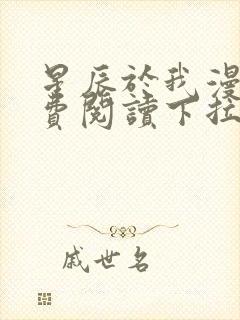 星辰於我漫
費閱讀下拉
戚世名